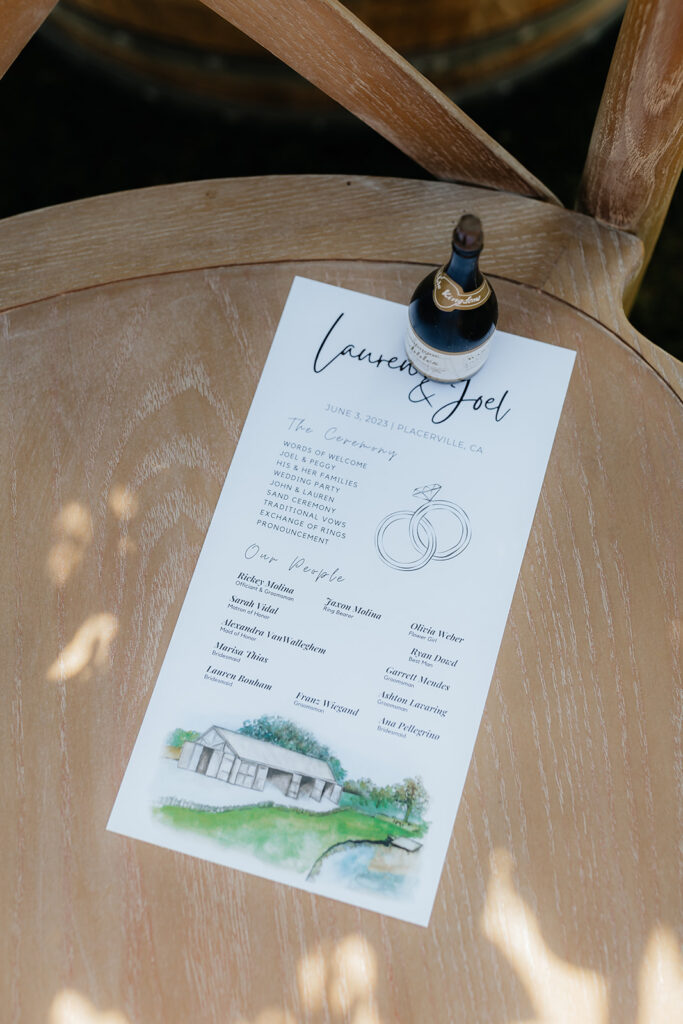 Lauren
& Joel
JUNE 3, 2023 | PLACERVILLE, CA
The Ceremony
WORDS OF WELCOME
JOEL & PEGGY
HIS & HER FAMILIES
WEDDING PARTY
JOHN & LAUREN
SAND CEREMONY
TRADITIONAL VOWS
EXCHANGE OF RINGS
PRONOUNCEMENT
Our People
Rickey Molina
Officiant & Groomsman
Jaxon Molina
Ring Bearer
Olivia Weber
Flower Girl
Sarah Vidal
Matron of Honor
Ryan Dowd
Best Man
Alexandra VanWalleghem
Maid of Honor
Garrett Mendes
Groomsman
Marisa Thias
Bridesmaid
Ashton Lavaring
Groomsman
Lauren Bonham
Bridesmaid
Franz Wiegand
Groomsman
Ana Pellegrino
Bridesmaid
Kingdoms